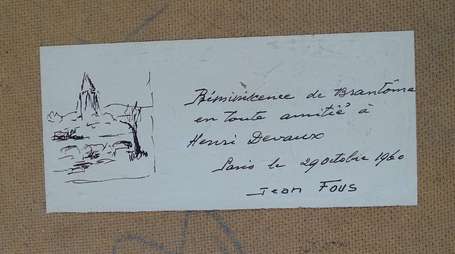 Réminiscence de Brantôme
en toute amitié à
Henri Devaux
Paris le 29 octobre 1960
Jean Fous